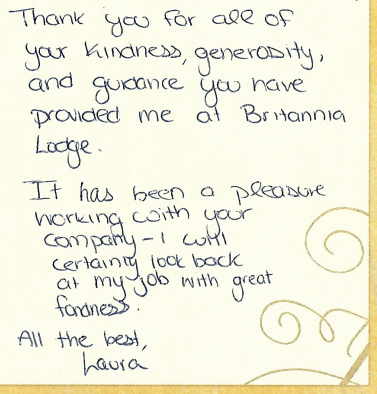 Thank you for all of
your kindness, generosity,
and guidance you have
provided me at Britannia
Lodge.
It has been a pleasure
working with your
company - I will
certainly look back
at my job with great
fondness.
All the best,
Laura